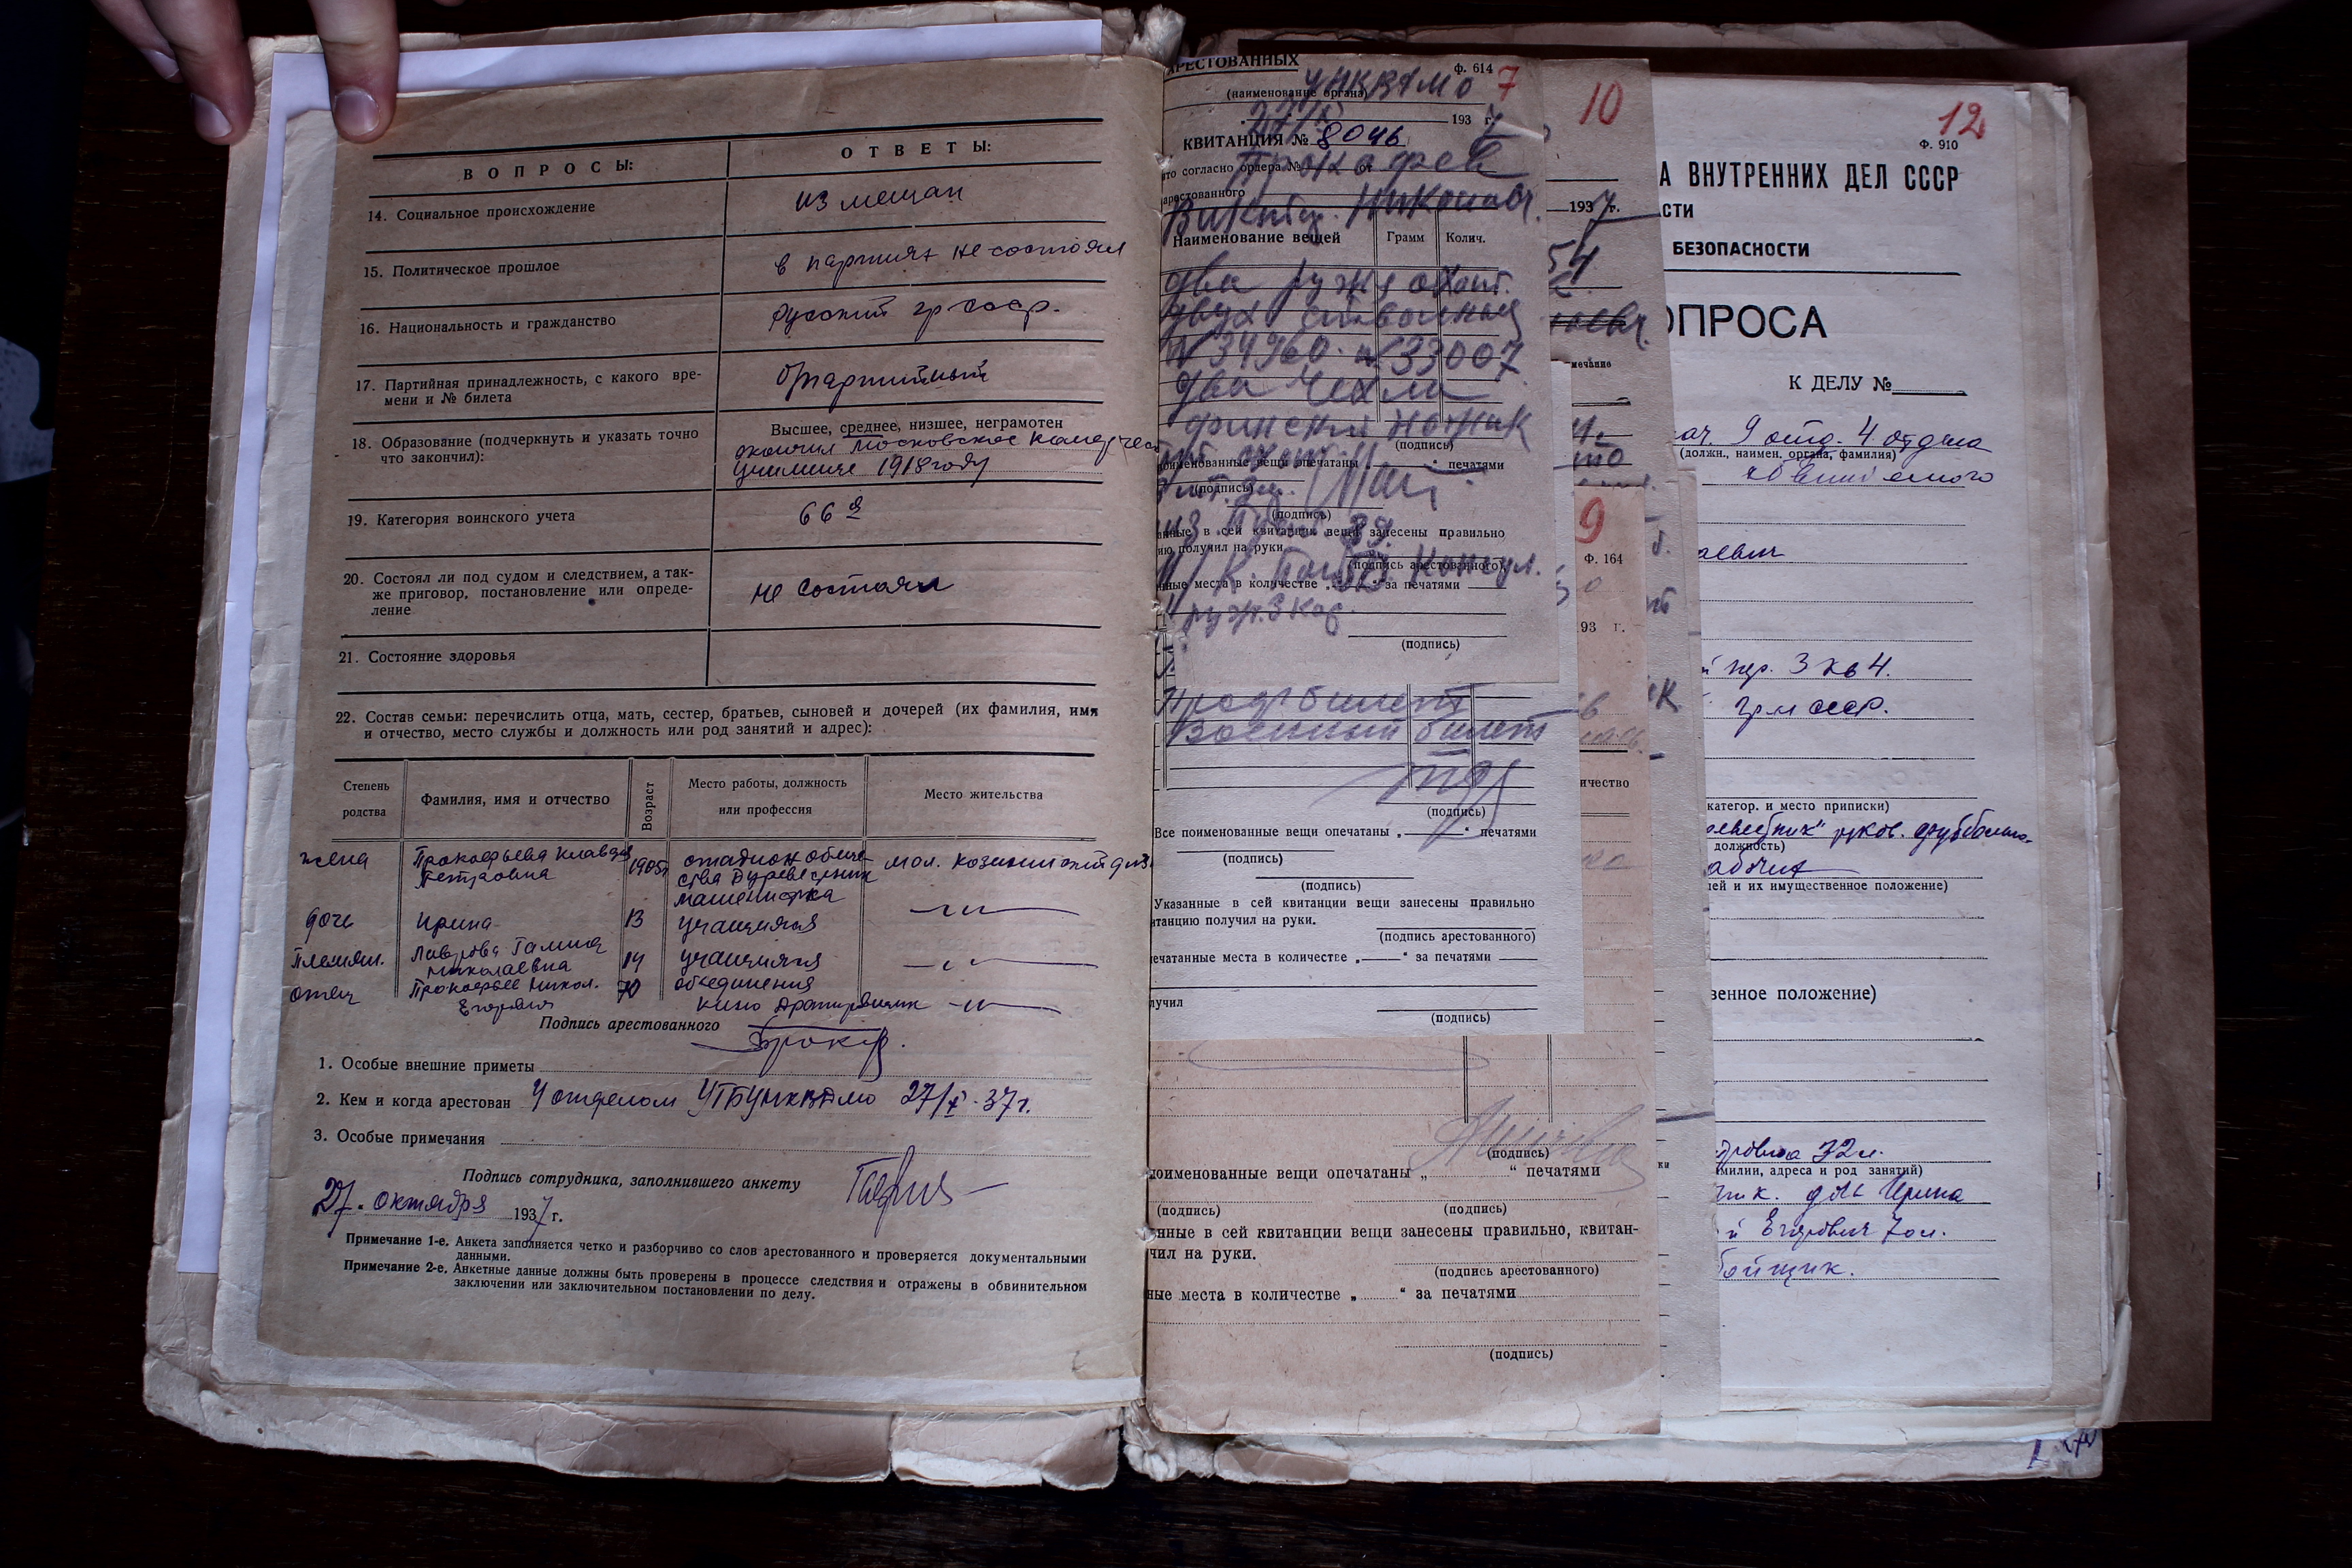 ВОПРОСЫ:
ОТВЕТЫ:
14. Социальное происхождение
из мещан
15. Политическое прошлое
в партиях не состоял
16. Национальность и гражданство
русский гр ссср.
17. Партийная принадлежность, с какого вре-
мени и № билета
18. Образование (подчеркнуть и указать точно
что закончил):
Высшее, среднее, низшее, неграмотен
окончил Московское
училище 1918 году
19. Категория воинского учета
66
20. Состоял ли под судом и следствием, а так-
же приговор, постановление или опреде-
ление
не состоял
21. Состояние здоровья
22. Состав семьи: перечислить отца, мать, сестер, братьев, сыновей и дочерей (их фамилия, имя
и отчество, место службы и должность или род занятий и адрес):
Степень
родства
Фамилия, имя и отчество
Возраст
Место работы, должность
или профессия
Место жительства
жена
Прокофьева Клавдия
Петровна
1905
стадион обще-
ства Буревестник
машинистка
дочь
Ирина
13
учащаяся
племян.
Лаврова Галина
Николаевна
14
учащаяся
отец
Прокофьев Никол.
Егорович
70
объединения
кино
Подпись арестованного
1. Особые внешние приметы
2. Кем и когда арестован 4 отделом УГБ УНКВД МО 27/X-37г.
3. Особые примечания
Подпись сотрудника, заполнившего анкету
27. октября 1937 г.
Примечание 1-е. Анкета заполняется четко и разборчиво со слов арестованного и проверяется документальными
данными.
Примечание 2-е. Анкетные данные должны быть проверены в процессе следствия и отражены в обвинительном
заключении или заключительном постановлении по делу.
АРЕСТОВАННЫХ
Ф. 614
УНКВД МО 7
(наименование органа)
193 7 г.
КВИТАНЦИЯ № 8046
то согласно ордера № от
Прокофьев
арестованного
Виктор Николаев.
Наименование вещей Грамм Колич.
два ружья охот.
двух ствольных
№ 34960. № 33007
два чехла
финский ножик
(подпись)
поименованные вещи опечатаны „ “ печатями
(подпись)
(подпись)
анные в сей квитанции вещи занесены правильно
ию получил на руки.
(подпись арестованного)
нные места в количестве „ “ за печатями
(подпись)
Проф билет
Военный билет
(подпись)
Все поименованные вещи опечатаны „ “ печатями
(подпись)
(подпись)
Указанные в сей квитанции вещи занесены правильно
итанцию получил на руки.
(подпись арестованного)
ечатанные места в количестве „ “ за печатями
лучил
(подпись)
(подпись)
поименованные вещи опечатаны „ “ печатями
(подпись) (подпись)
нные в сей квитанции вещи занесены правильно, квитан-
чил на руки.
(подпись арестованного)
ные места в количестве „ “ за печатями
(подпись)
10
1937 г.
54
мечание
9
Ф. 164
93 г.
ичество
12
Ф. 910
А ВНУТРЕННИХ ДЕЛ СССР
СТИ
БЕЗОПАСНОСТИ
ОПРОСА
К ДЕЛУ №
нач. 9 отд. 4 отдела
(должн., наимен. органа, фамилия)
обвиняемого
аевич
пер. 3 кв 4.
гр-н ссср.
категор. и место приписки)
ревестник" руков.
должность)
лей и их имущественное положение)
венное положение)
тровна 32 л.
милии, адреса и род занятий)
дочь Ирина
й Егорович 70 л.
бойщик.